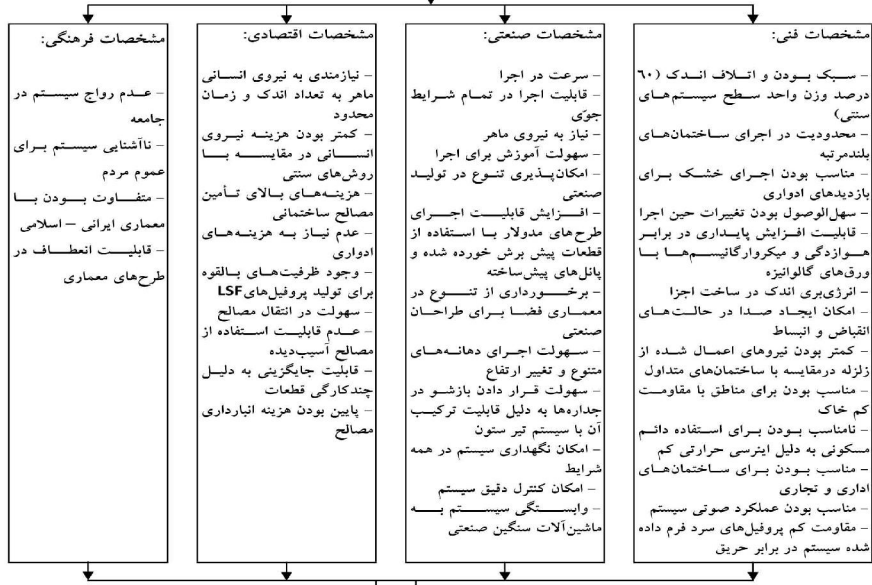 مشخصات فنی:
– سبک بودن و اتلاف اندک (۶۰
درصد وزن واحد سطح سیستم‌های
سنتی)
– محدودیت در اجرای ساختمان‌های
بلندمرتبه
– مناسب بودن اجرای خشک برای
بازدیدهای ادواری
– سهل‌الوصول بودن تغییرات حین اجرا
– قابلیت افزایش پایداری در برابر
هوازدگی و میکروارگانیسم‌ها با
ورق‌های گالوانیزه
– انرژی‌بری اندک در ساخت اجزا
– امکان ایجاد صدا در حالت‌های
انقباض و انبساط
– کمتر بودن نیروهای اعمال شده از
زلزله درمقایسه با ساختمان‌های متداول
– مناسب بودن برای مناطق با مقاومت
کم خاک
– نامناسب بودن برای استفاده دائم
مسکونی به دلیل اینرسی حرارتی کم
– مناسب بودن برای ساختمان‌های
اداری و تجاری
– مناسب بودن عملکرد صوتی سیستم
– مقاومت کم پروفیل‌های سرد فرم داده
شده سیستم در برابر حریق
مشخصات صنعتی:
– سرعت در اجرا
– قابلیت اجرا در تمام شرایط
جوّی
– نیاز به نیروی ماهر
– سهولت آموزش برای اجرا
– امکان‌پذیری تنوع در تولید
صنعتی
– افزایش قابلیت اجرای
طرح‌های مدولار با استفاده از
قطعات پیش برش خورده شده و
پانل‌های پیش‌ساخته
– برخورداری از تنوع در
معماری فضا برای طراحان
صنعتی
– سهولت اجرای دهانه‌های
متنوع و تغییر ارتفاع
– سهولت قرار دادن بازشو در
جداره‌ها به دلیل قابلیت ترکیب
آن با سیستم تیر ستون
– امکان نگهداری سیستم در همه
شرایط
– امکان کنترل دقیق سیستم
– وابستگی سیستم به
ماشین‌آلات سنگین صنعتی
مشخصات اقتصادی:
– نیازمندی به نیروی انسانی
ماهر به تعداد اندک و زمان
محدود
– کمتر بودن هزینه نیروی
انسانی در مقایسه با
روش‌های سنتی
– هزینه‌های بالای تأمین
مصالح ساختمانی
– عدم نیاز به هزینه‌های
ادواری
– وجود ظرفیت‌های بالقوه
برای تولید پروفیل‌های LSF
– سهولت در انتقال مصالح
– عدم قابلیت استفاده از
مصالح آسیب‌دیده
– قابلیت جایگزینی به دلیل
چندکارگی قطعات
– پایین بودن هزینه انبارداری
مصالح
مشخصات فرهنگی:
– عدم رواج سیستم در
جامعه
– ناآشنایی سیستم برای
عموم مردم
– متفاوت بودن با
معماری ایرانی – اسلامی
– قابلیت انعطاف در
طرح‌های معماری